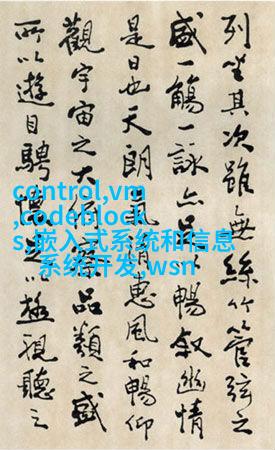 列坐其次雖無絲竹管弦之
盛一觴一詠亦足以暢敘幽情
是日也天朗氣清惠風和暢仰
觀宇宙之大俯察品類之盛
所以遊目騁懷足以極視聽之
control,vm
,codeblock
s,嵌入式系统和信息
系统开发,wsn